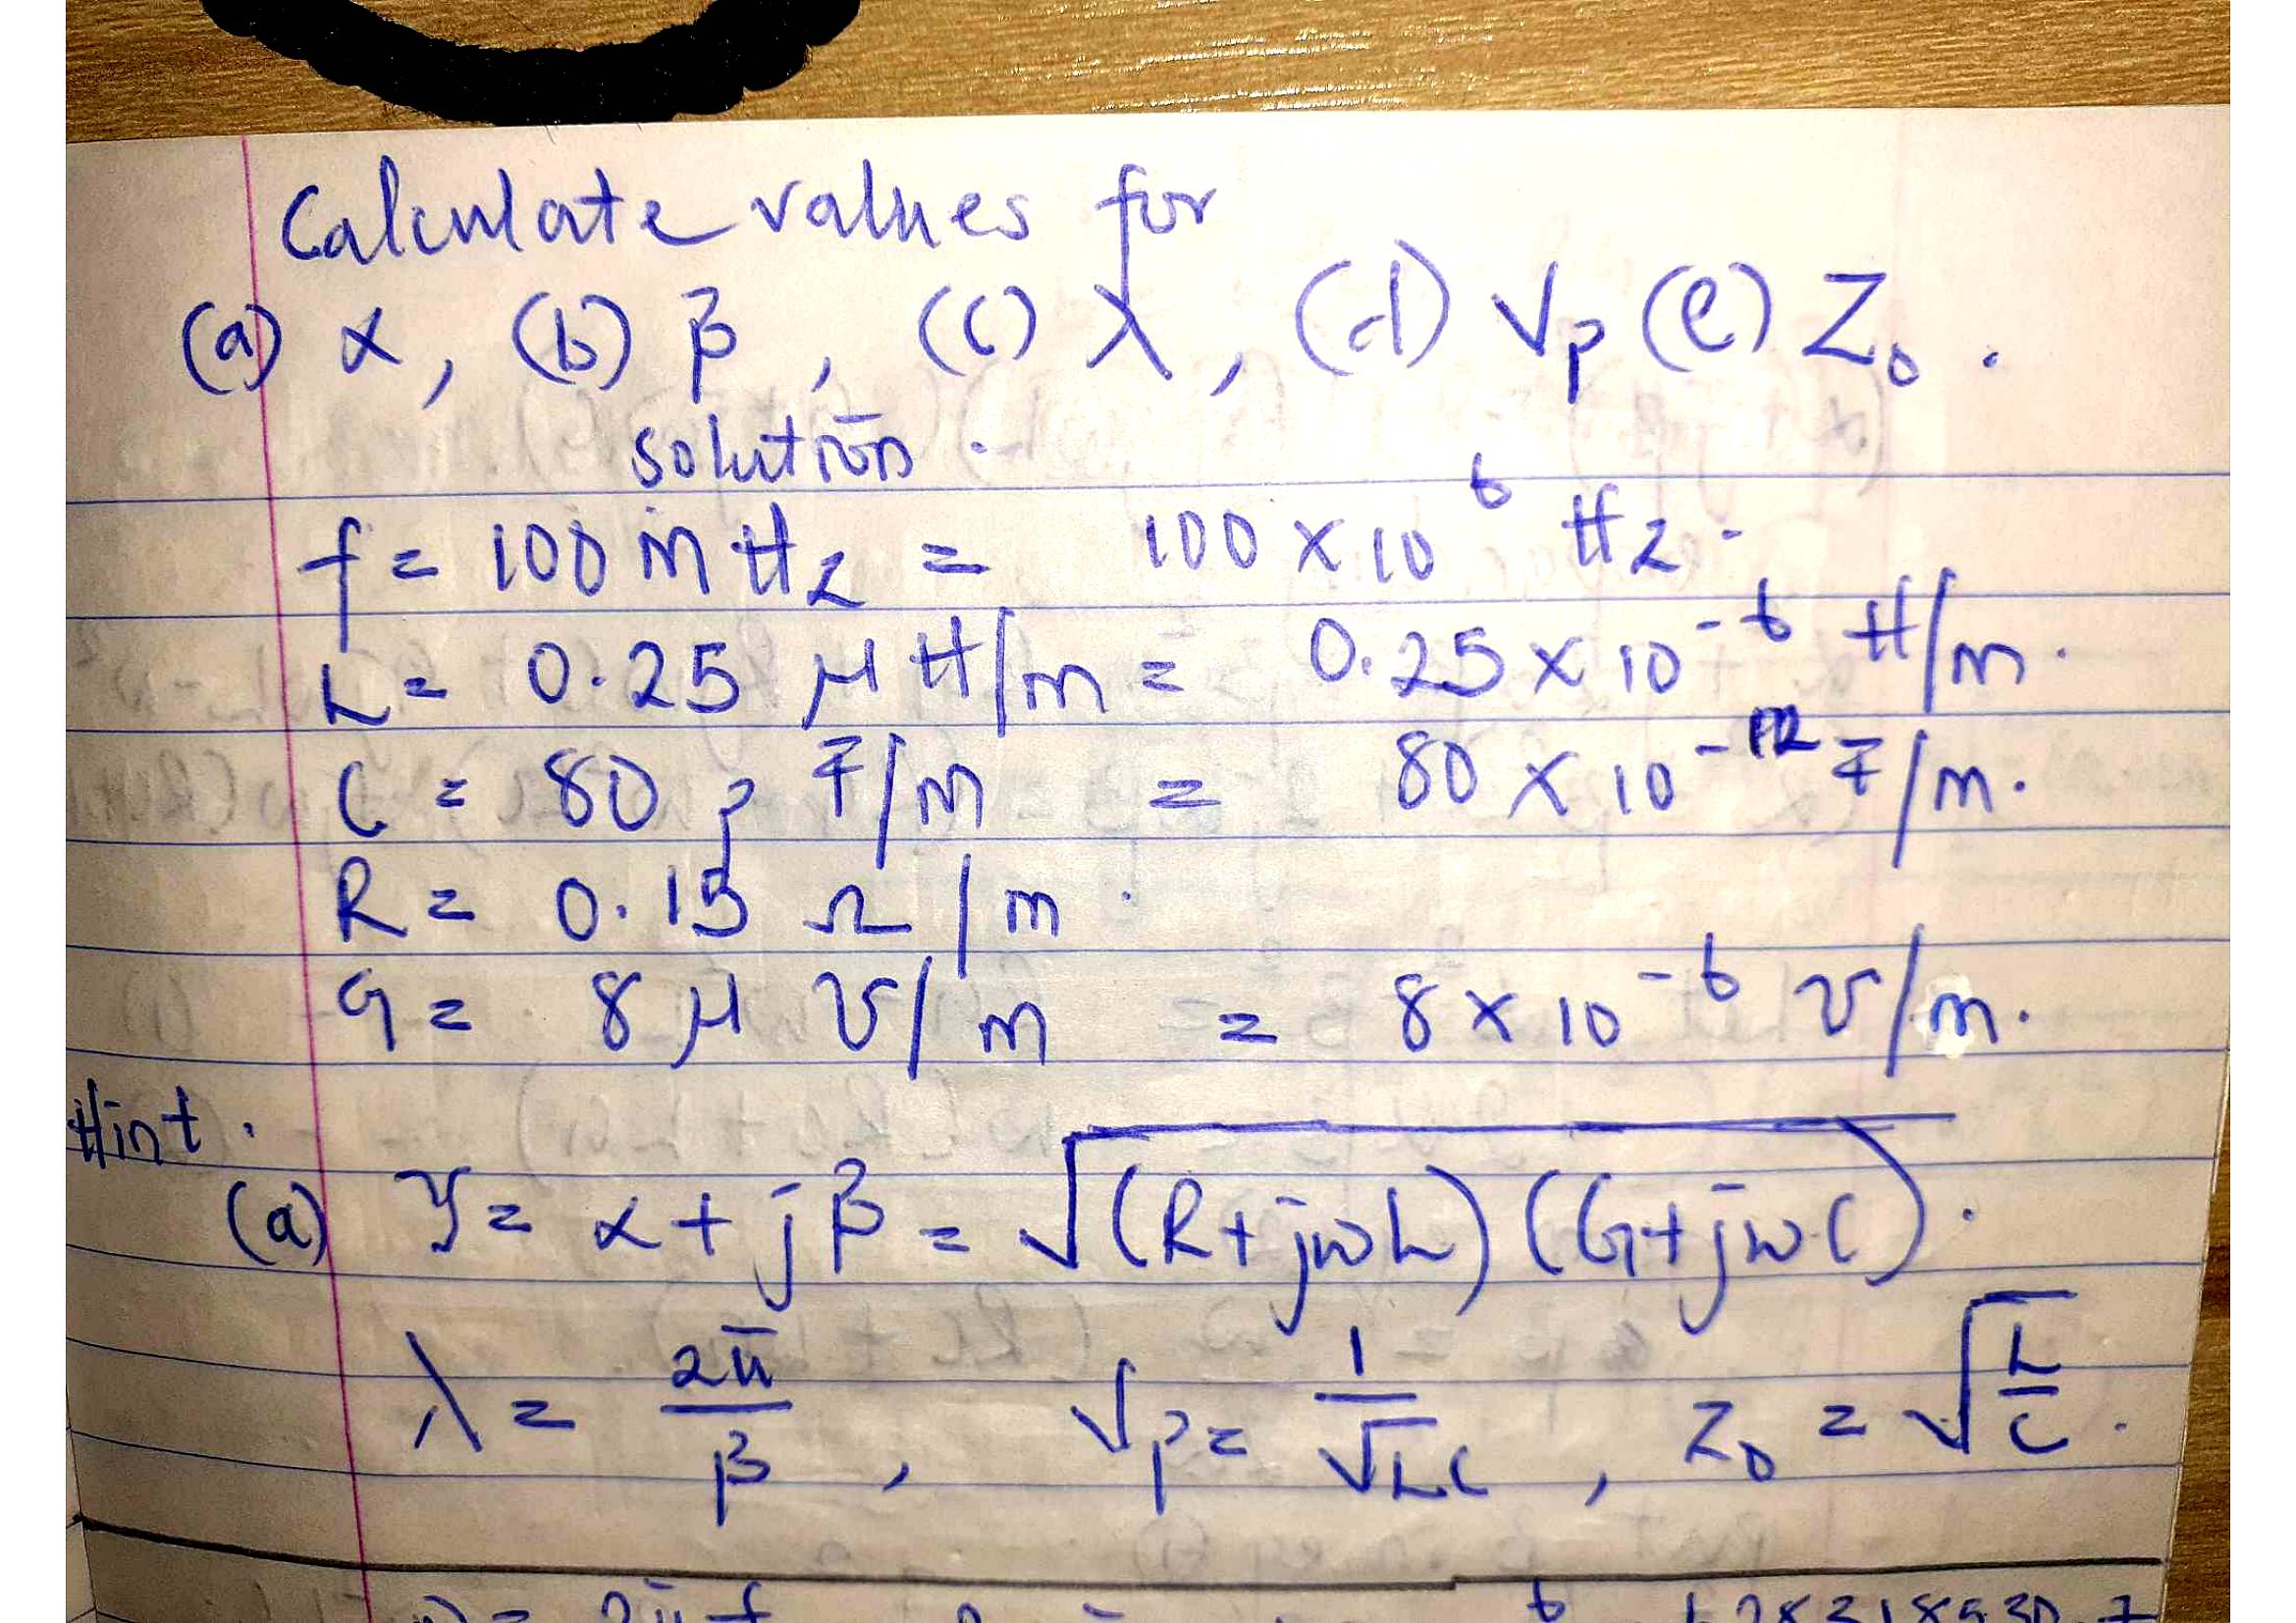 Calculate values for
(a) α, (b) β, (c) λ, (d) Vp (e) Z₀.
solution.
f = 100 MHz = 100 × 10⁶ Hz.
L = 0.25 μH/m = 0.25 × 10⁻⁶ H/m.
C = 80 pF/m = 80 × 10⁻¹² F/m.
R = 0.15 Ω/m.
G = 8 μ ℧/m = 8 × 10⁻⁶ ℧/m.
Hint.
(a) γ = α + jβ = √((R+jωL)(G+jωC)).
λ = 2π/β, Vp = 1/√LC, Z₀ = √(L/C).